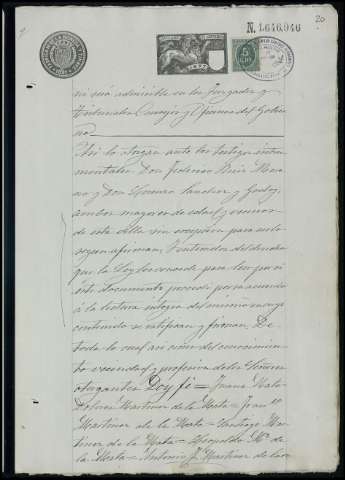 N. 1.646.946
20
ni será admisible en los Juzgados y
Tribunales Consejos y Oficinas del Gobier
no
Así lo otorgan ante los testigos instru
mentales Don Federico Ruiz
y Don Lorenzo Sanchez y Godoy,
ambos mayores de edad y vecinos
de esta villa sin excepcion para serlo
segun afirman. Enterados del derecho
que la Ley les concede para leer por sí
este documento procedí por su acuerdo
á la lectura íntegra del mismo en cuyo
contenido se ratifican y firman. De
todo lo cual así como del conocimien
to vecindad y profesion de los Señores
otorgantes Doy fé = Juana
Dolores Martinez de la Mata = Juan
Martinez de la Mata = Santiago Mar
tinez de la Mata = Leopoldo M. de
la Mata = Antonio J. Martinez de la